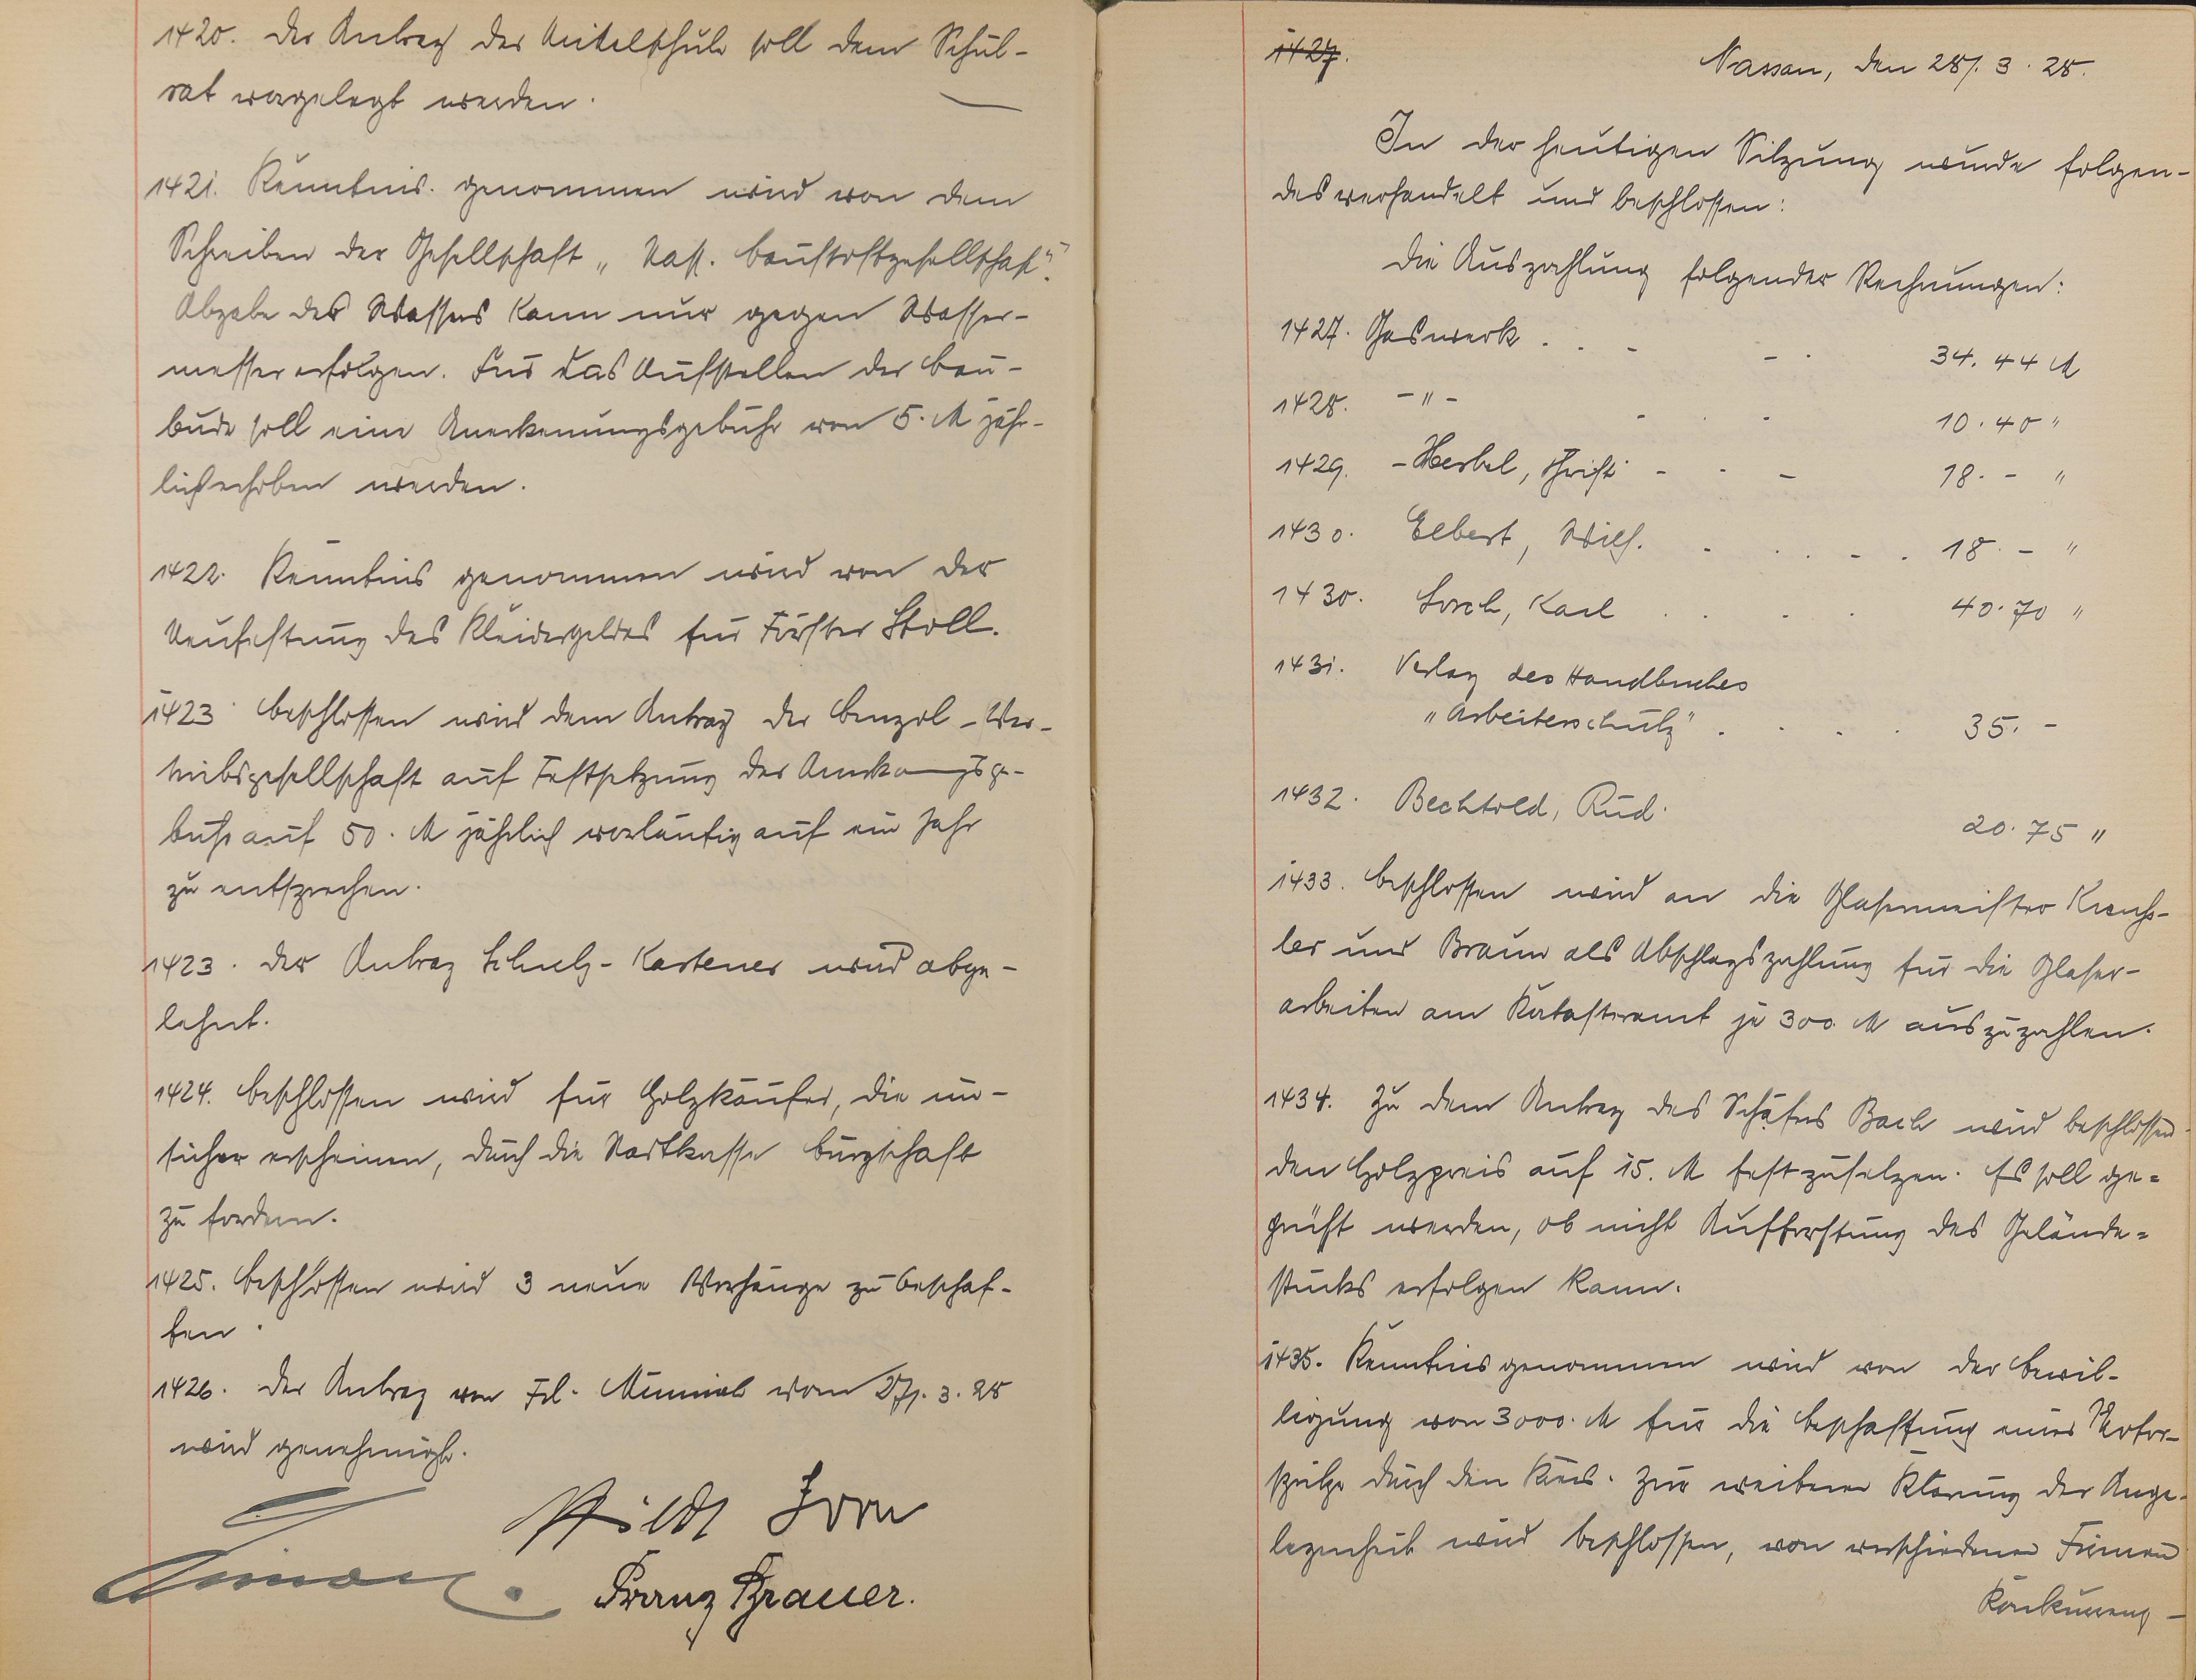 1420. Der Antrag der Mittelschule soll dem Schul-
rat vorgelegt werden.
1421. Kenntnis genommen wird von dem
Schreiben der Gesellschaft „Nass. Baustoffgesellschaft“.
Abgabe des Wassers kann nur gegen Wasser-
messer erfolgen. Für das Aufstellen der Bau-
bude soll eine Anerkenungsgebühr von 5. M jähr-
lich erhoben werden.
1422. Kenntnis genommen wird von der
Neufestung des Kleidergeldes für Förster Stoll.
1423 Beschlossen wird dem Antrag der Benzol-Ver-
triebsgesellschaft auf Festsetzung der Anerkennungsge-
bühr auf 50. M jährlich vorläufig auf ein Jahr
zu entsprechen.
1423. Der Antrag Schulz-Kastener wird abge-
lehnt.
1424. Beschlossen wird für Holzkäufer, die un-
sicher erscheinen, durch die Stadtkasse Bürgschaft
zu fordern.
1425. Beschlossen wird 3 neue Vorhänge zu beschaf-
fen.
1426. Der Antrag von Frl. vom 27/. 3. 28
wird genehmigt.
Zorn
Franz Brauer.
1427.
Nassau, den 28/. 3. 28.
In der heutigen Sitzung wurde folgen-
des verhandelt und beschlossen:
Die Auszahlung folgender Rechnungen:
1427. Gaswerk . . - - . 34. 44 M
1428. -"- - . - 10. 40 "
1429. - Herbel, Christ. - - - 18. - "
1430. Elbert, Wilh. . . . - . 18. - "
1430. Lorch, Karl . . . . 40. 70 "
1431. Verlag des Handbuches
"Arbeiterschutz" . . . . 35. -
1432. Bechtold, Rud. 20. 75 "
1433. Beschlossen wird an die Glasermeister
und Braun als Abschlagszahlung für die Glaser-
arbeiten am Katasteramt je 300. M auszuzahlen.
1434. Zu dem Antrag des Schäfers Bach wird beschlossen
den Holzpreis auf 15. M festzusetzen. Es soll ge=
prüft werden, ob nicht Aufforstung des Gelände=
stücks erfolgen kann.
1435. Kenntnis genommen wird von der Bewil-
ligung von 3000. M für die Beschaffung einer Motor-
spritze durch den Kreis. Zur weiteren Klärung der Ange-
legenheit wird beschlossen, von verschiedenen Firmen
Konkurrenz-